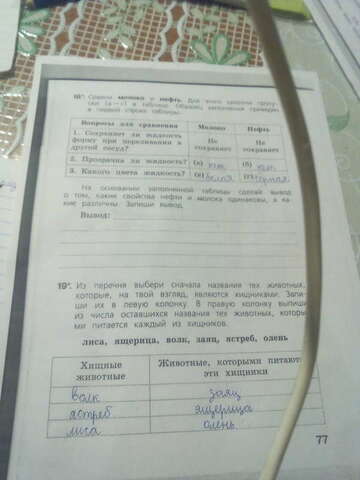 18*. Сравни молоко и нефть. Для этого заполни пропус-
ки (а—г) в таблице. Образец заполнения приведён
в первой строке таблицы.
Вопросы для сравнения Молоко Нефть
1. Сохраняет ли жидкость форму при переливании в другой сосуд? Не сохраняет Не сохраняет
2. Прозрачна ли жидкость? (а) нет (б) нет
3. Какого цвета жидкость? (в) белая (г) чёрная
На основании заполненной таблицы сделай вывод
о том, какие свойства нефти и молока одинаковы, а ка-
кие различны. Запиши вывод.
Вывод:
19*. Из перечня выбери сначала название тех животных,
которые, на твой взгляд, являются хищниками. Запи-
ши их в левую колонку. В правую колонку выпиши
из числа оставшихся названия тех животных, которы-
ми питается каждый из хищников.
лиса, ящерица, волк, заяц, ястреб, олень
Хищные животные Животные, которыми питаются эти хищники
волк заяц
ястреб ящерица
лиса олень
77